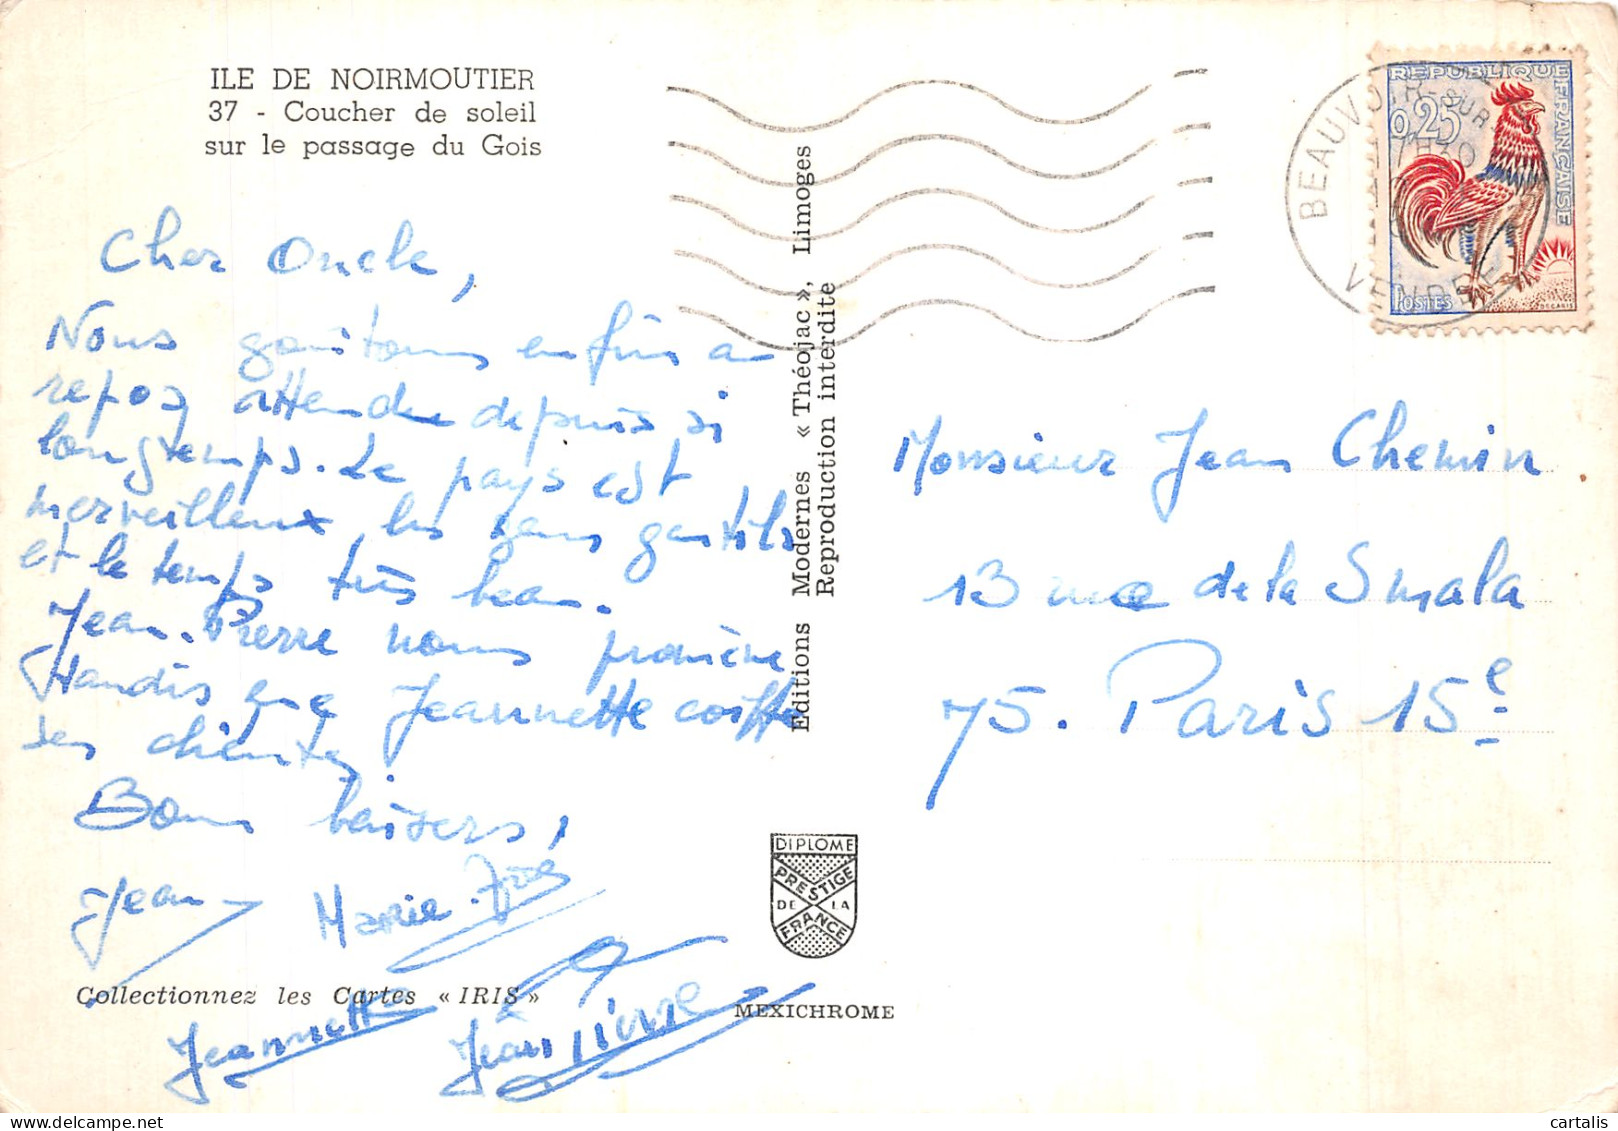 ILE DE NOIRMOUTIER
37 - Coucher de soleil
sur le passage du Gois
Cher Oncle,
Nous goûtons enfin au
repos attendu depuis si
longtemps. Le pays est
merveilleux les gens gentils
et le temps très beau.
Jean-Pierre nous promène
tandis que Jeannette coiffe
ses clientes
Bons baisers,
Jean
Marie
Jeannette
Jean Pierre
Collectionnez les Cartes « IRIS »
Editions Modernes « Théojac », Limoges
Reproduction interdite
DIPLOME
PRESTIGE
DE LA
FRANCE
MEXICHROME
BEAUVOIR-SUR
17H30
VENDEE
REPUBLIQUE
FRANÇAISE
0,25
POSTES
DECARIS
Monsieur Jean Chemin
13 rue de la Smala
75. Paris 15e
cartalis